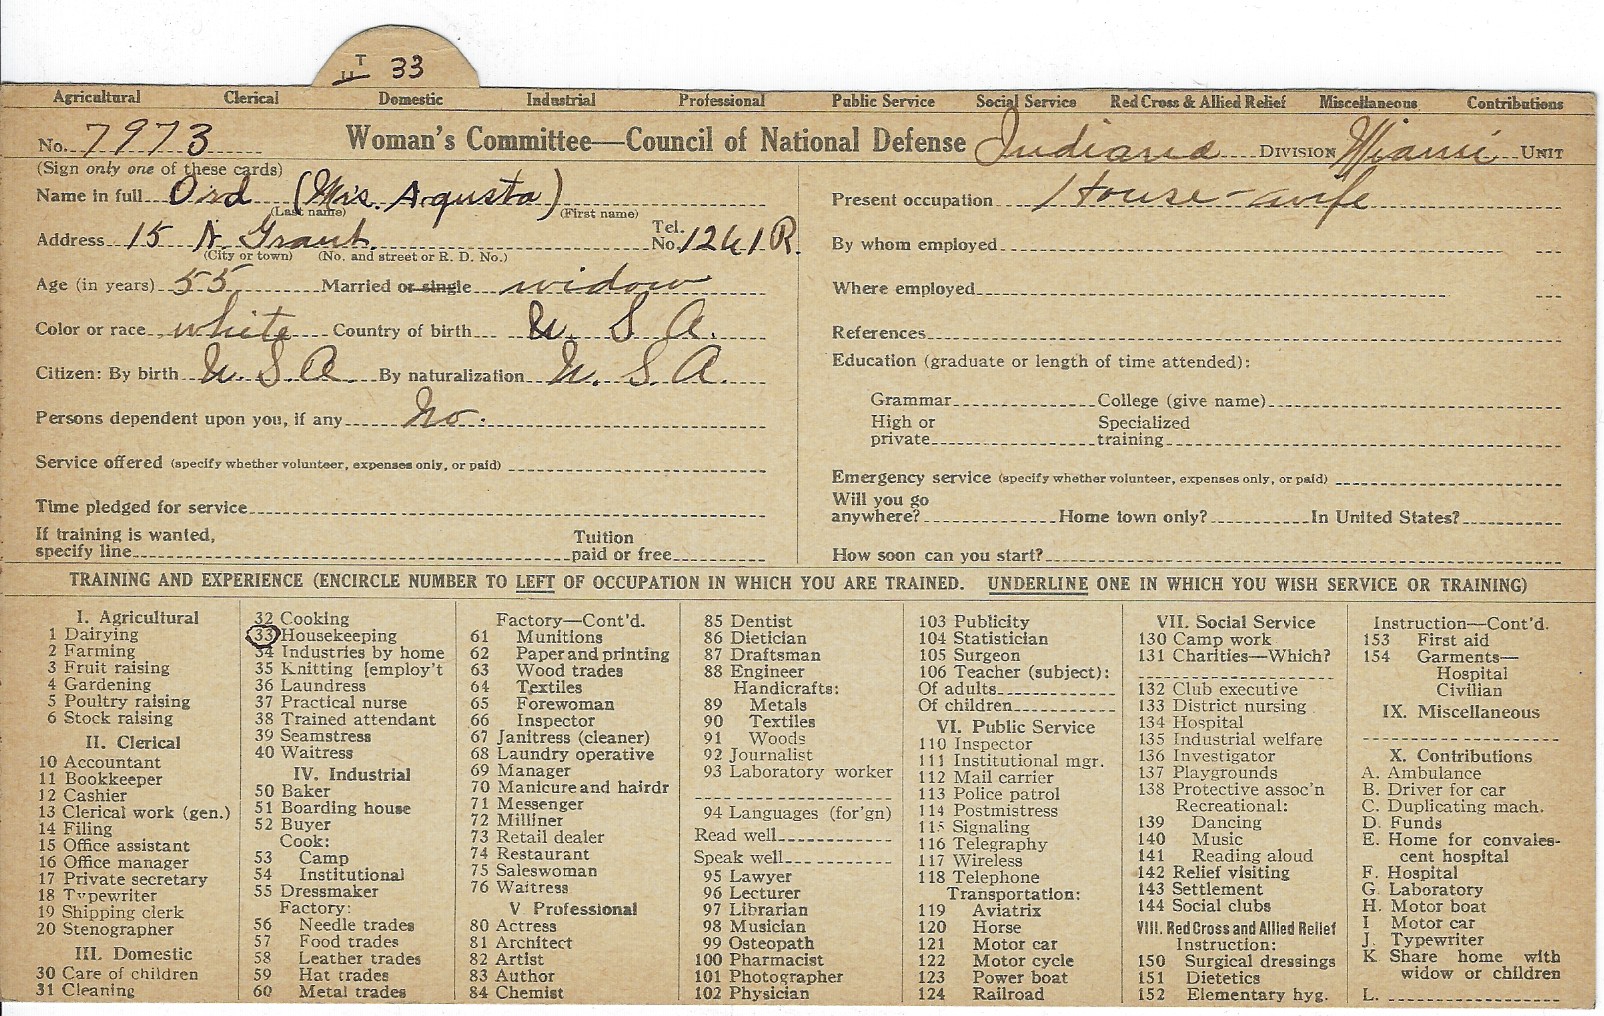 UT 33
Agricultural Clerical Domestic Industrial Professional Public Service Social Service Red Cross & Allied Relief Miscellaneous Contributions
No. 7973 Woman's Committee—Council of National Defense Indiana DIVISION Miami UNIT
(Sign only one of these cards)
Name in full Ord (Mrs. Agusta)
(Last name) (First name)
Address 15 N. Grant Tel. No. 1261R.
(City or town) (No. and street or R. D. No.)
Age (in years) 55 Married or single widow
Color or race white Country of birth U. S. A.
Citizen: By birth U. S. A. By naturalization U. S. A.
Persons dependent upon you, if any No.
Service offered (specify whether volunteer, expenses only, or paid)
Time pledged for service
If training is wanted,
specify line Tuition paid or free
Present occupation House-wife
By whom employed
Where employed
References
Education (graduate or length of time attended):
Grammar College (give name)
High or private Specialized training
Emergency service (specify whether volunteer, expenses only, or paid)
Will you go
anywhere? Home town only? In United States?
How soon can you start?
TRAINING AND EXPERIENCE (ENCIRCLE NUMBER TO LEFT OF OCCUPATION IN WHICH YOU ARE TRAINED. UNDERLINE ONE IN WHICH YOU WISH SERVICE OR TRAINING)
I. Agricultural
1 Dairying
2 Farming
3 Fruit raising
4 Gardening
5 Poultry raising
6 Stock raising
II. Clerical
10 Accountant
11 Bookkeeper
12 Cashier
13 Clerical work (gen.)
14 Filing
15 Office assistant
16 Office manager
17 Private secretary
18 Typewriter
19 Shipping clerk
20 Stenographer
III. Domestic
30 Care of children
31 Cleaning
32 Cooking
33 Housekeeping
34 Industries by home
35 Knitting [employ't
36 Laundress
37 Practical nurse
38 Trained attendant
39 Seamstress
40 Waitress
IV. Industrial
50 Baker
51 Boarding house
52 Buyer
Cook:
53 Camp
54 Institutional
55 Dressmaker
Factory:
56 Needle trades
57 Food trades
58 Leather trades
59 Hat trades
60 Metal trades
Factory—Cont'd.
61 Munitions
62 Paper and printing
63 Wood trades
64 Textiles
65 Forewoman
66 Inspector
67 Janitress (cleaner)
68 Laundry operative
69 Manager
70 Manicure and hairdr
71 Messenger
72 Milliner
73 Retail dealer
74 Restaurant
75 Saleswoman
76 Waitress
V Professional
80 Actress
81 Architect
82 Artist
83 Author
84 Chemist
85 Dentist
86 Dietician
87 Draftsman
88 Engineer
Handicrafts:
89 Metals
90 Textiles
91 Woods
92 Journalist
93 Laboratory worker
94 Languages (for'gn)
Read well
Speak well
95 Lawyer
96 Lecturer
97 Librarian
98 Musician
99 Osteopath
100 Pharmacist
101 Photographer
102 Physician
103 Publicity
104 Statistician
105 Surgeon
106 Teacher (subject):
Of adults
Of children
VI. Public Service
110 Inspector
111 Institutional mgr.
112 Mail carrier
113 Police patrol
114 Postmistress
115 Signaling
116 Telegraphy
117 Wireless
118 Telephone
Transportation:
119 Aviatrix
120 Horse
121 Motor car
122 Motor cycle
123 Power boat
124 Railroad
VII. Social Service
130 Camp work
131 Charities—Which?
132 Club executive
133 District nursing
134 Hospital
135 Industrial welfare
136 Investigator
137 Playgrounds
138 Protective assoc'n
Recreational:
139 Dancing
140 Music
141 Reading aloud
142 Relief visiting
143 Settlement
144 Social clubs
VIII. Red Cross and Allied Relief
Instruction:
150 Surgical dressings
151 Dietetics
152 Elementary hyg.
Instruction—Cont'd.
153 First aid
154 Garments—
Hospital
Civilian
IX. Miscellaneous
X. Contributions
A. Ambulance
B. Driver for car
C. Duplicating mach.
D. Funds
E. Home for convales-
cent hospital
F. Hospital
G. Laboratory
H. Motor boat
I Motor car
J. Typewriter
K Share home with
widow or children
L.